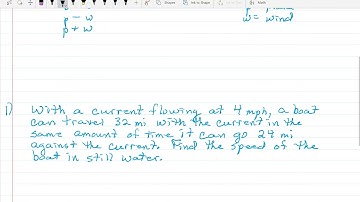 p - w
p + w
w = wind
1) With a current flowing at 4 mph, a boat
can travel 32 mi with the current in the
same amount of time it can go 24 mi
against the current. Find the speed of the
boat in still water.